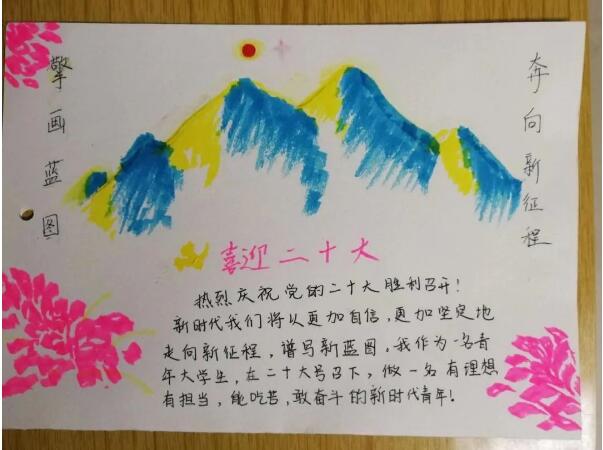 擎画蓝图
奔向新征程
喜迎二十大
热烈庆祝党的二十大胜利召开！
新时代我们将以更加自信，更加坚定地
走向新征程，谱写新蓝图。我作为一名青
年大学生，在二十大号召下，做一名有理想
有担当，能吃苦，敢奋斗的新时代青年！